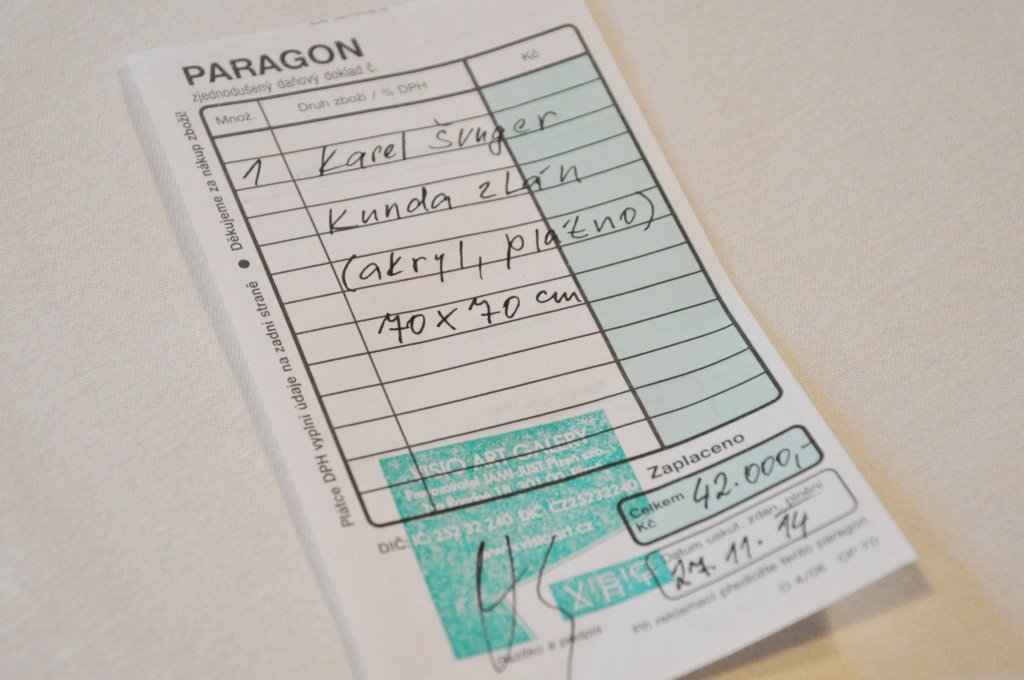 PARAGON
zjednodušený daňový doklad č.
Množ.
Druh zboží / % DPH
Kč
1 Karel Švuger
Kunda zlán
(akryl, plazno)
70 x 70 cm
Plátce DPH vyplní údaje na zadní straně • Děkujeme za nákup zboží!
VISIO ART GALERY
Provozovatel JAMI-JUST Plzeň s.r.o.
301 00
DIČ: IČ: 252 32 240 DIČ: CZ25232240
Zaplaceno
Celkem Kč 42.000,-
Datum uskut. zdan. plnění
27. 11. 14
Při reklamaci předložte tento paragon
razítko a podpis
OP 70